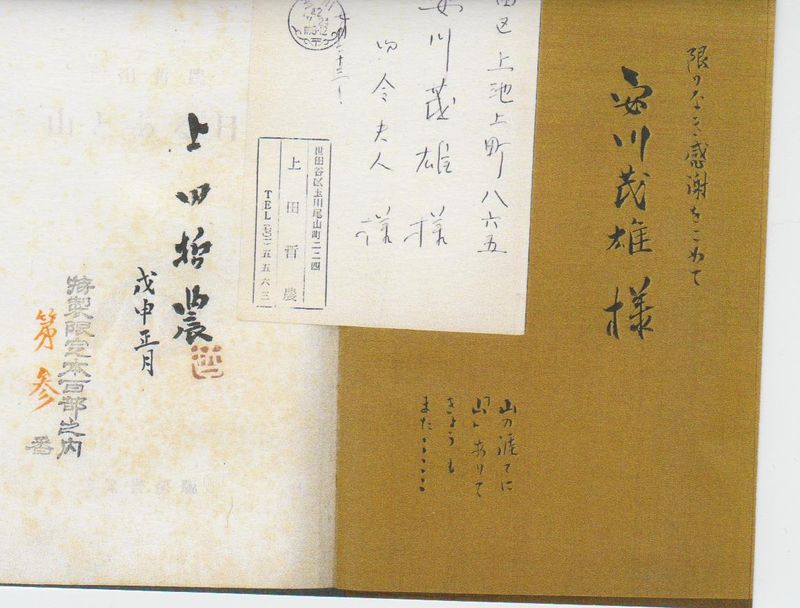 限りなき感謝をこめて
安川茂雄様
山の涯てに
山ありて
きょうも
また・・・・
田区上池上町八六五
安川茂雄様
令夫人様
七月二十三日
世田谷区玉川尾山町二二四
上田哲農
上田哲農
戊申正月
特製限定本百部之内
第参番